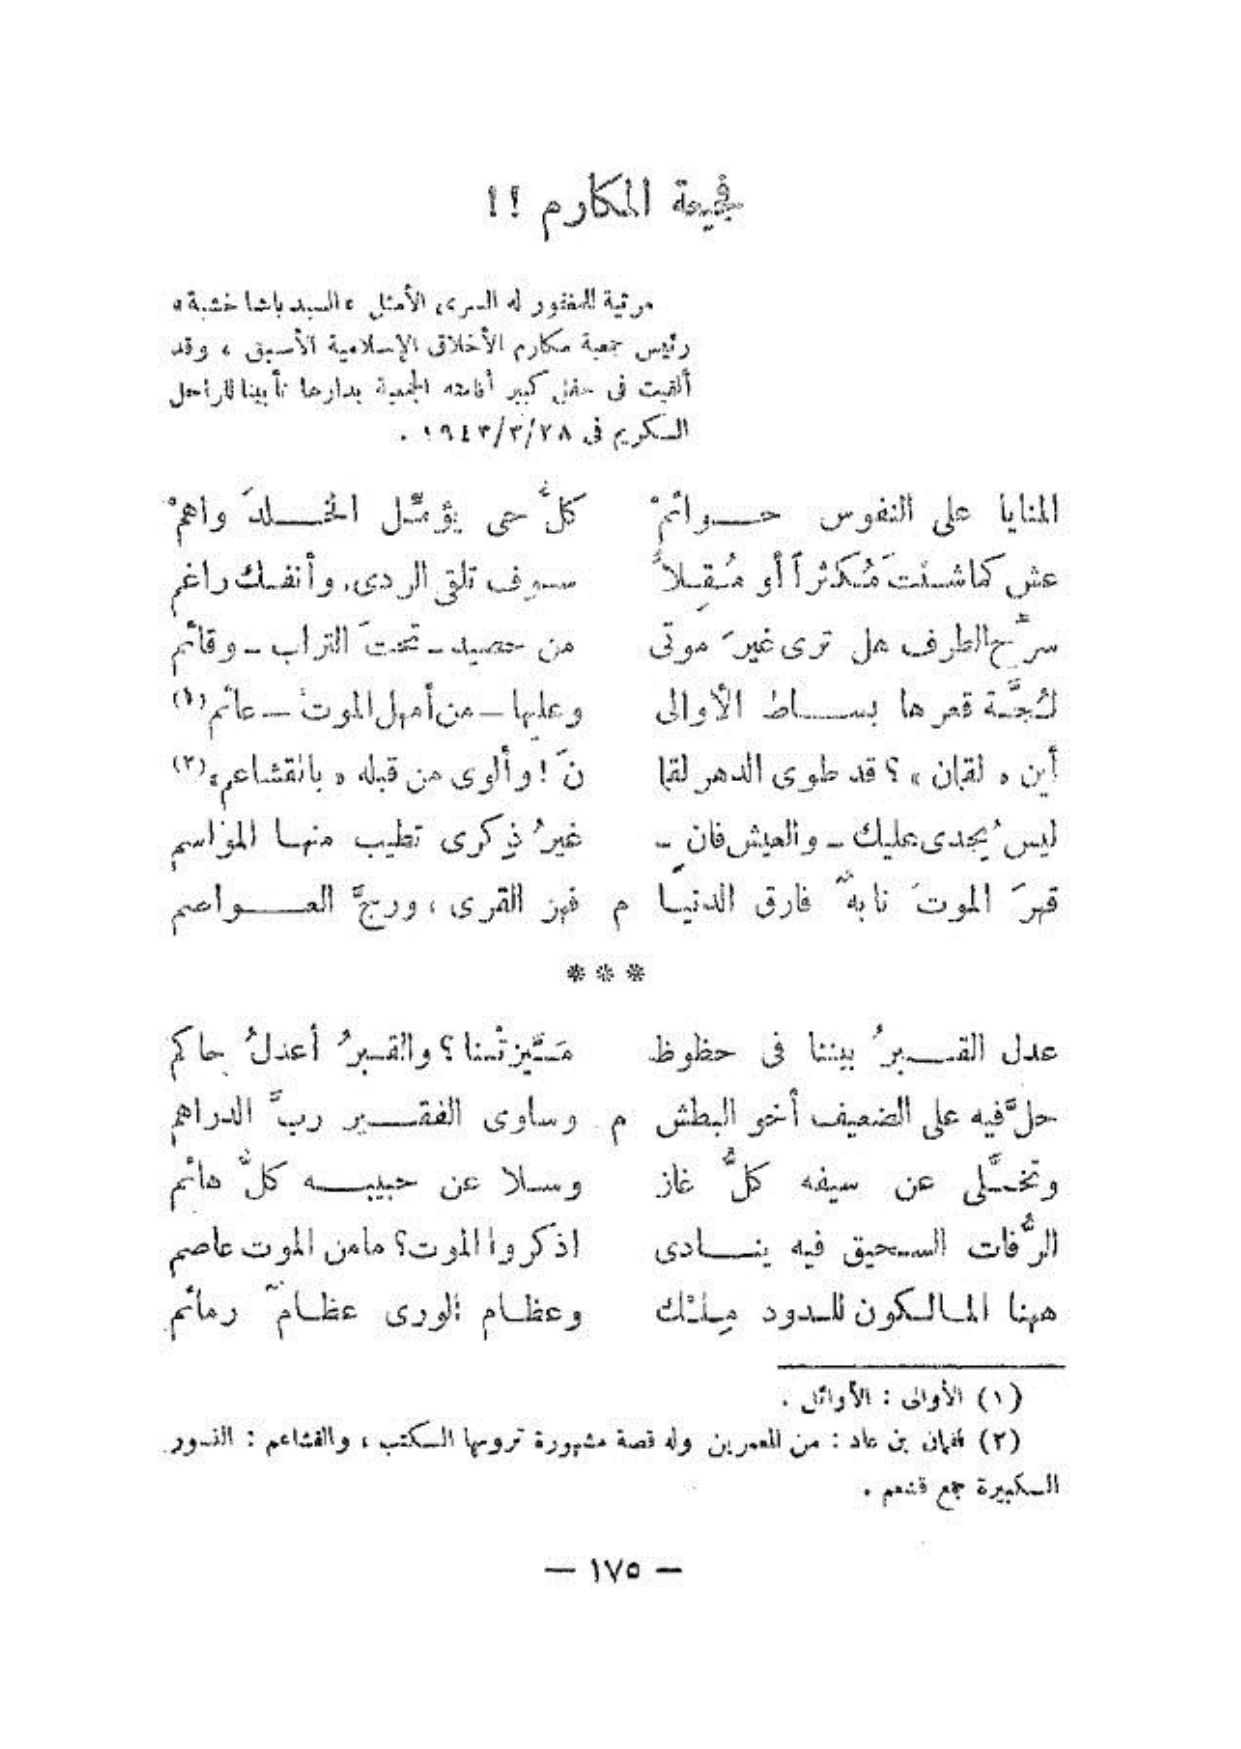 فجيعة المكارم !!
مرثية للمغفور له السرى الأمثل « السيد باشا خشبة »
رئيس جمعية مكارم الأخلاق الإسلامية الأسبق ، وقد
ألقيت فى حفل كبير أقامته الجمعية بدارها تأبينا للراحل
الكريم فى ٢٨/٣/١٩٤٣ .
المنايا على النفوس حوائمْ كلُّ حى يؤمِّل الخلدَ واهمْ
عش كما شئتَ مُكثراً أو مُقِلاًّ سوف تلقى الردى، وأنفك راغم
سرِّح الطرف هل ترى غيرَ موتى من حصيد ـ تحتَ التراب ـ وقائم
لُجَّة قعرها بساط الأوالى وعليها ـ من أمهل الموت ـ عائم (١)
أين « لقمان » ؟ قد طوى الدهر لقما نَ ! وألوى من قبله « بالقشاعم » (٢)
ليس يُجدى عليك ـ والعيش فانٍ ـ غيرُ ذِكرى تطيب منها المواسم
قهرَ الموتَ نابهٌ فارق الدنيا م فهز القرى ، ورجَّ العواصم
***
عدل القبرُ بيننا فى حظوظ مَيَّزتْنا ؟ والقبرُ أعدلُ حاكم
حلَّ فيه على الضعيف أخو البطش م وساوى الفقير ربَّ الدراهم
وتخلَّى عن سيفه كلُّ غاز وسلا عن حبيبه كلُّ هائم
الرُّفات السحيق فيه ينادى اذكروا الموت؟ ما من الموت عاصم
ههنا المالكون للدود مِلْك وعظام الورى عظامٌ رمائم
(١) الأوالى : الأوائل .
(٢) لقمان بن عاد : من المعمرين وله قصة مشهورة ترويها الكتب ، والقشاعم : النسور
الكبيرة جمع قشعم .
— ١٧٥ —